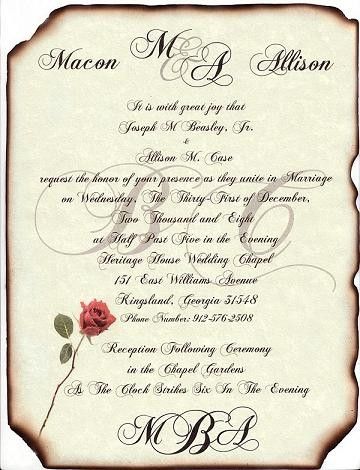 Macon M & A Allison
It is with great joy that
Joseph M Beasley, Jr.
&
Allison M. Case
request the honor of your presence as they unite in Marriage
on Wednesday, The Thirty-First of December,
Two Thousand and Eight
at Half Past Five in the Evening
Heritage House Wedding Chapel
151 East Williams Avenue
Kingsland, Georgia 31548
Phone Number: 912-576-2508
Reception Following Ceremony
in the Chapel Gardens
As The Clock Strikes Six In The Evening
MBA